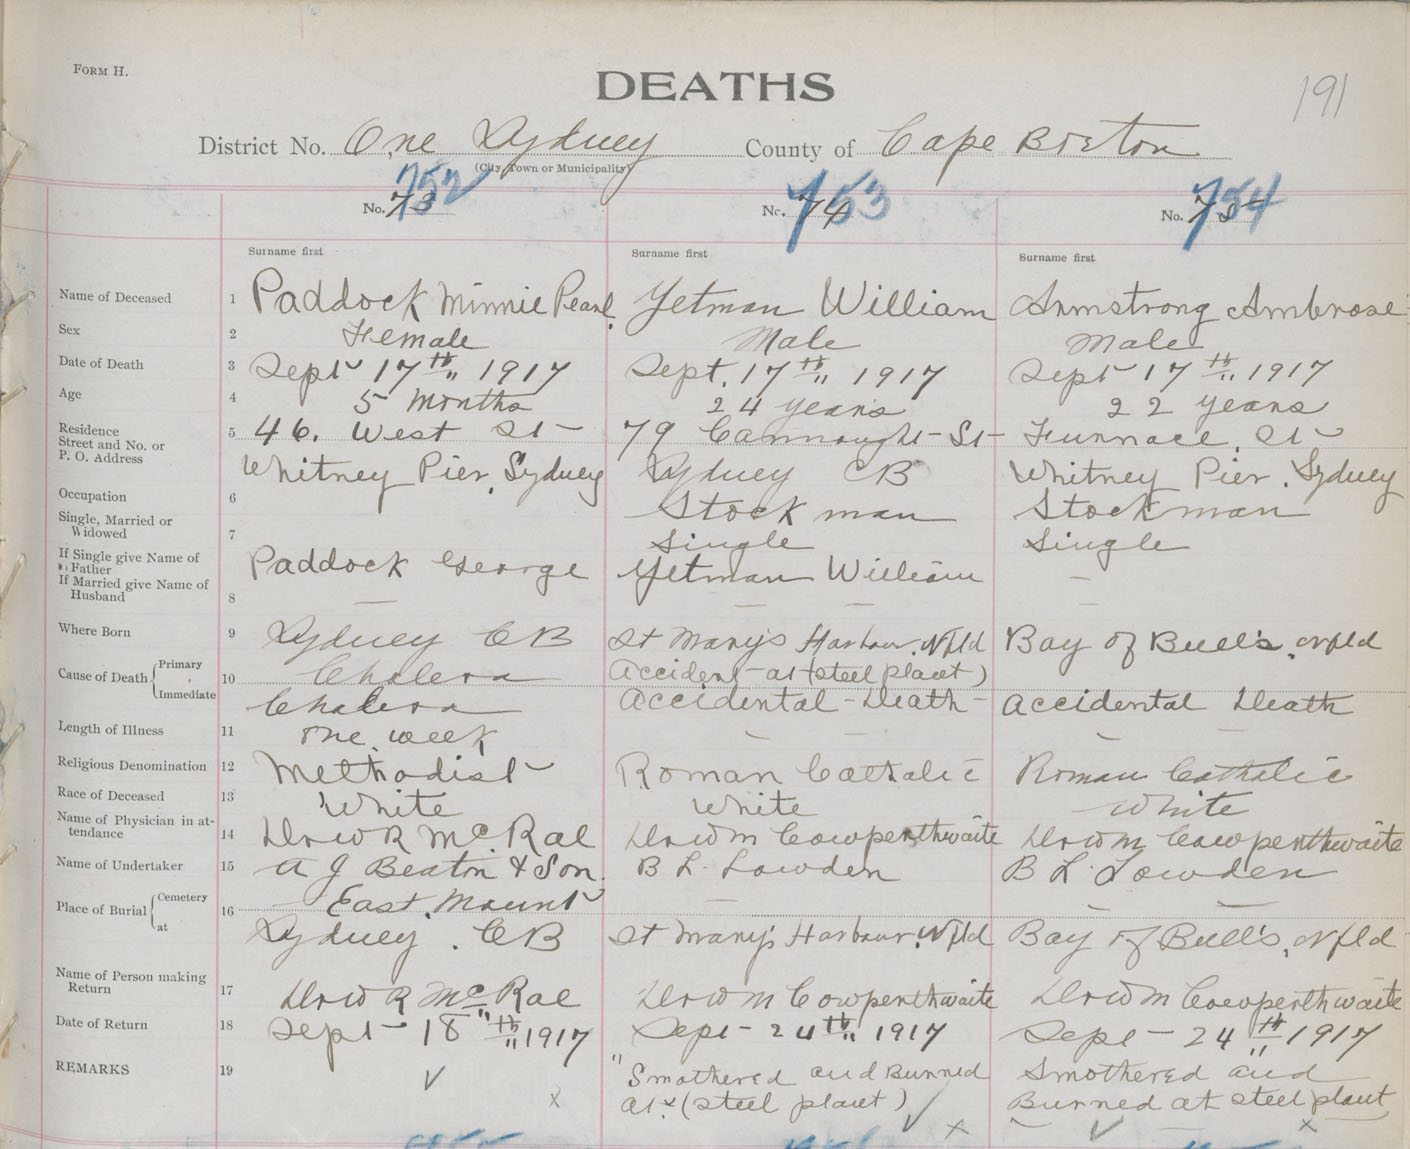 FORM H.
DEATHS
191
District No. One Sydney County of Cape Breton
(City Town or Municipality)
752 753 754
No. 73 No. 74 No. 75
Surname first Surname first Surname first
Name of Deceased 1 Paddock Minnie Pearl. Yetman William Armstrong Ambrose
Sex 2 Female Male Male
Date of Death 3 Sept 17th 1917 Sept. 17th 1917 Sept 17th 1917
Age 4 5 Months 24 years 22 years
Residence Street and No. or P. O. Address 5 46. West St 79 Cannaught St Furnace. St
Whitney Pier, Sydney Sydney CB Whitney Pier. Sydney
Occupation 6 Stockman Stockman
Single, Married or Widowed 7 Single Single
If Single give Name of Father Paddock George Yetman William —
If Married give Name of Husband 8 — — —
Where Born 9 Sydney CB St Mary's Harbour. Nfld Bay of Bull's. Nfld
Cause of Death Primary 10 Cholera Accident at (steel plant)
Immediate Cholera Accidental Death Accidental Death
Length of Illness 11 one week — — — —
Religious Denomination 12 Methodist Roman Catholic Roman Catholic
Race of Deceased 13 White White White
Name of Physician in attendance 14 Dr W R McRae Dr W M Cowperthwaite Dr W M Cowperthwaite
Name of Undertaker 15 A J Beaton & Son. B L. Lowden B L. Lowden
Place of Burial Cemetery 16 East. Mount — — —
at Sydney. CB St Mary's Harbour. Nfld Bay of Bull's, Nfld
Name of Person making Return 17 Dr W R McRae Dr W M Cowperthwaite Dr W M Cowperthwaite
Date of Return 18 Sept 18th 1917 Sept 24th 1917 Sept 24th 1917
REMARKS 19 "Smothered and Burned Smothered and
at (steel plant) Burned at steel plant